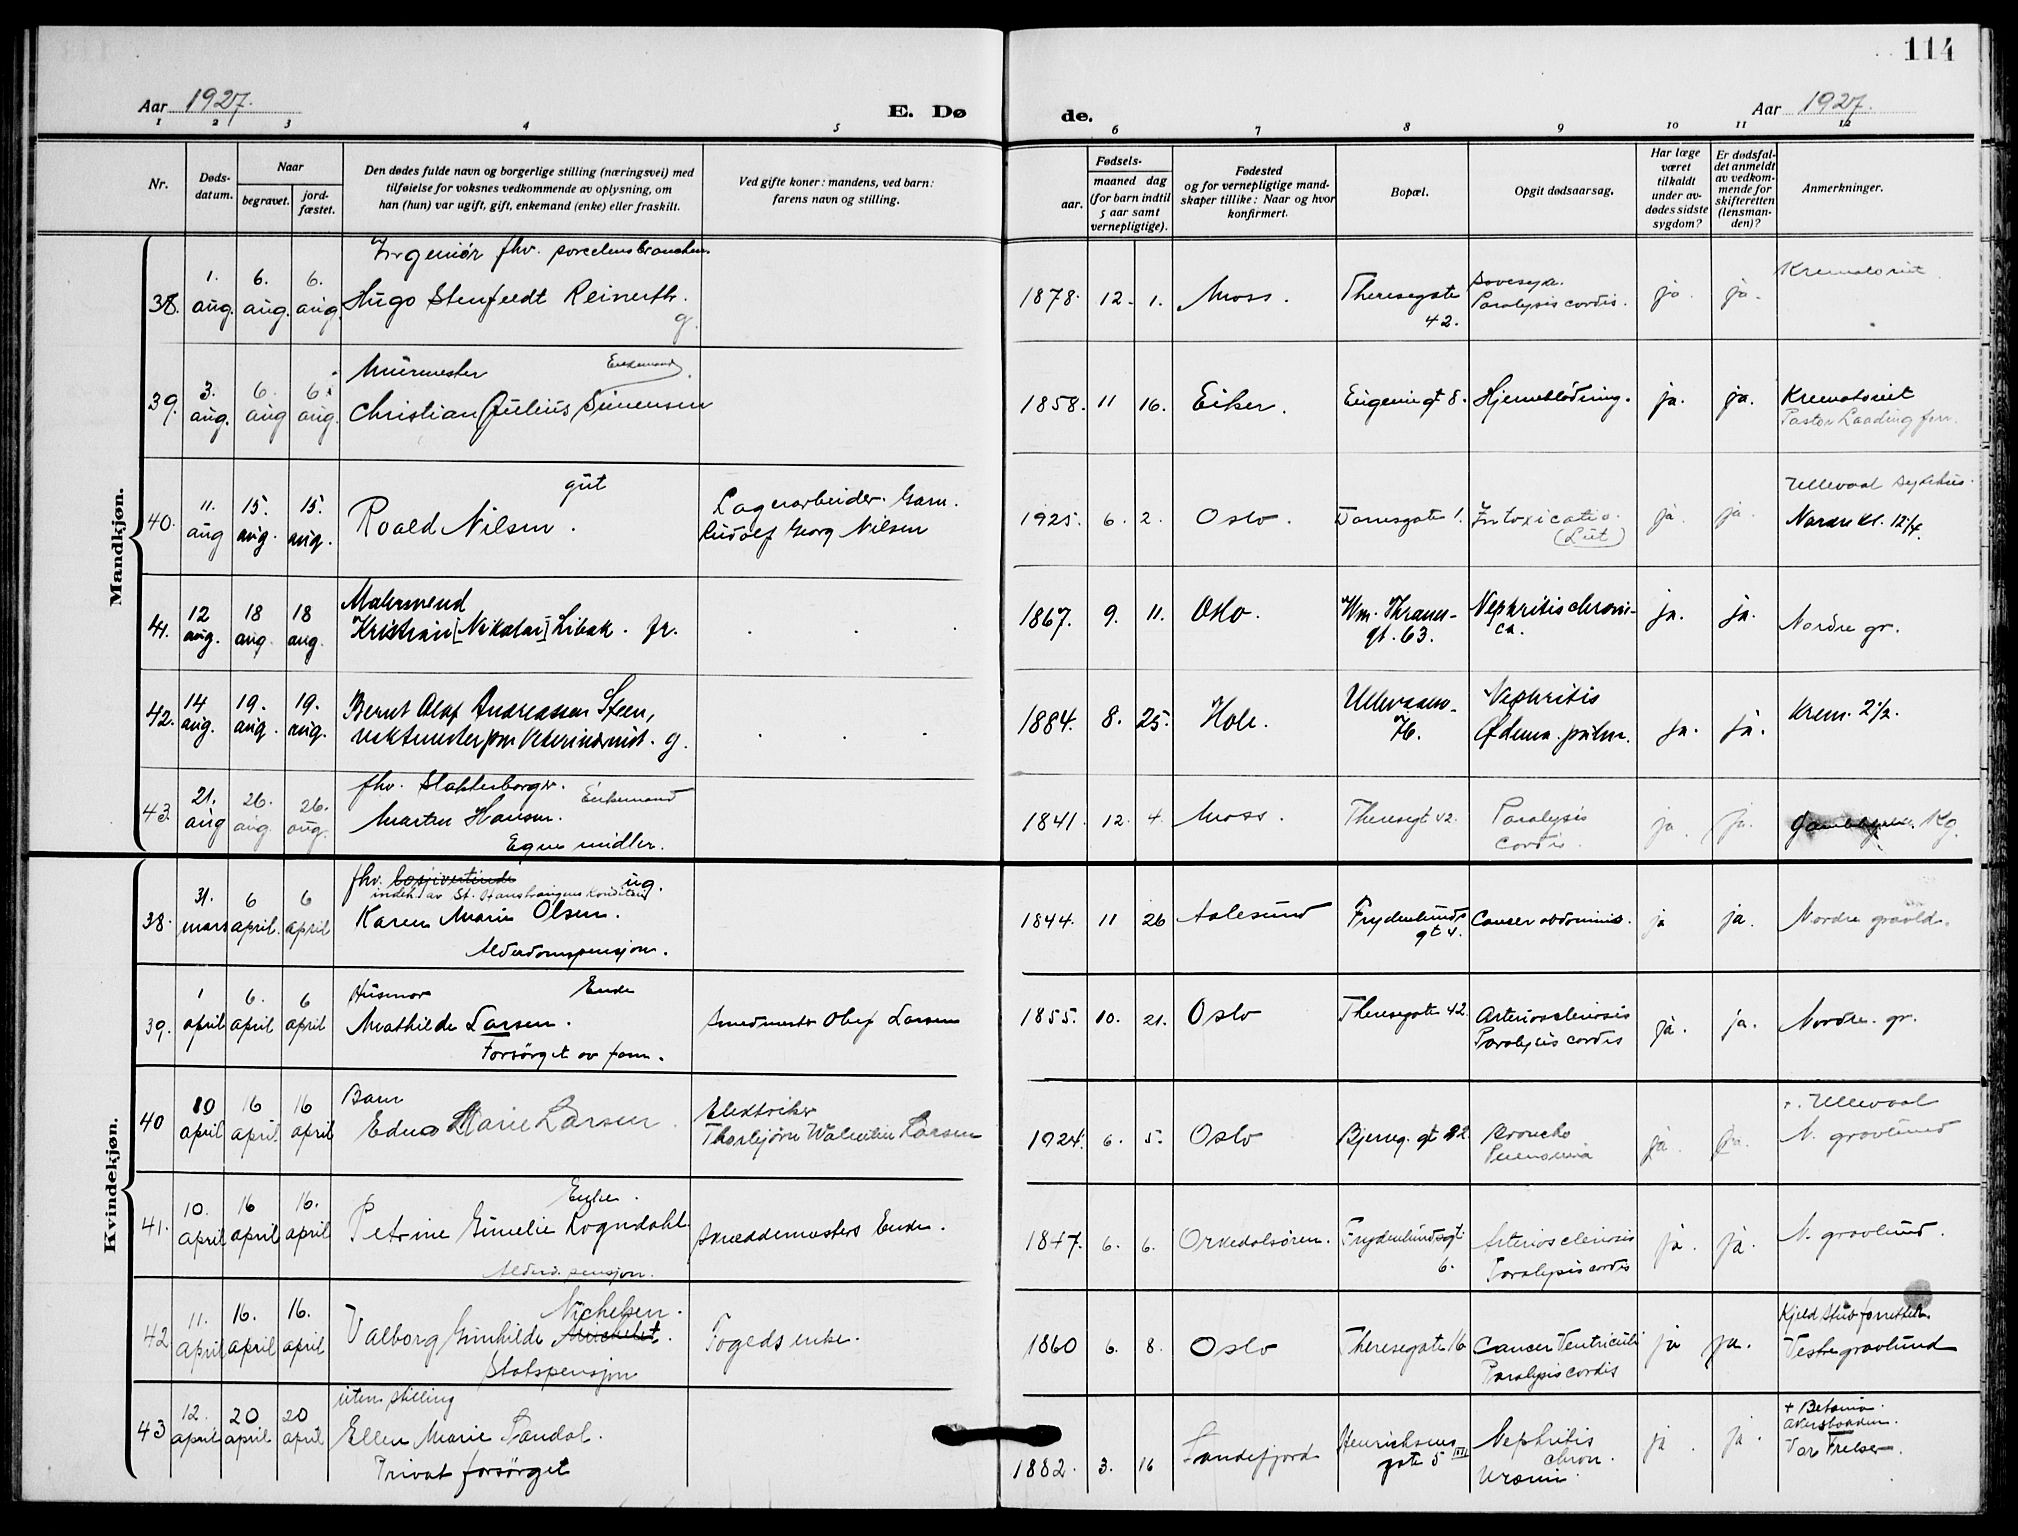 114
Aar 1927. E. Døde. Aar 1927.
1 2 3 4 5 6 7 8 9 10 11 12
Nr. Døds-datum. Naar begravet. jord-fæstet. Den dødes fulde navn og borgerlige stilling (næringsvei) med tilføielse for voksnes vedkommende av oplysning, om han (hun) var ugift, gift, enkemand (enke) eller fraskilt. Ved gifte koner: mandens, ved barn: farens navn og stilling. Fødsels- aar. maaned dag (for barn indtil 5 aar samt vernepligtige). Fødested og for vernepligtige mandskaper tillike: Naar og hvor konfirmert. Bopæl. Opgit dødsaarsag. Har læge været tilkaldt under avdødes sidste sygdom? Er dødsfaldet anmeldt av vedkommende for skifteretten (lensmanden)? Anmerkninger.
Mandkjøn.
Ingeniør fhv. porcelensbranchen.
38. 1. aug. 6. aug. 6. aug. Hugo Reinerth. g. 1878. 12. 1. Moss. Theresegate 42. Paralysis cordis. ja. ja. Krematoriet
Murmester Enkemand
39. 3. aug. 6. aug 6. aug. Christian Julius Simensen 1858. 11 16. Eiker. Eugeniegt 8. Hjerneblødning. ja. ja. Krematoriet
Pastor Laading forr.
gut
40. 11. aug 15. aug. 15. aug. Roald Nilsen. Lagerarbeider. Garn. Rudolf Georg Nilsen 1925. 6. 2. Oslo. 1. Intoxicatio. (Lut) ja. ja. Ullevaal sykehus.
Nordre kl. 12¼.
41. 12 aug. 18 aug. 18 aug. Malersvend
Kristian [Nikolai] Libak. fr. 1867. 9. 11. Oslo. Wm. Thranes-gt. 63. Nephritis chronica. ja. ja. Nordre gr.
42. 14 aug. 19. aug. 19. aug. Bernt Olaf Andreassen Steen,
g. 1884. 8. 25. Hole. 76. Nephritis
Ødema. pulm. ja. ja. Krem. 2½.
fhv. Slakterborger. Enkemand
43. 21. aug 26. aug. 26. aug. Martin Hansen.
Egne midler. 1841. 12. 4. Moss. Theresegt 42. Paralysis cordis. ja. ja. Gamlebyen. Kg
Kvindekjøn.
fhv. losjivertinde ug.
indeh. av St. Hanshaugens Konditori
38. 31. mars 6 april. 6 april Karen Marie Olsen.
Alderdomspensjon. 1844. 11 26 Aalesund Frydenlunds gt 4. Cancer abdominis. ja ja. Nordre gravld.
Husmor Enke
39. 1 april 6. april 6 april Mathilde Larsen.
Forsørget av fam. Smedmester Olaf Larsen 1855. 10. 21. Oslo Theresegate 42. Arteriosclerosis
Paralysis cordis ja. ja. Nordre. gr.
Barn
40 10 april 16 april. 16 april Edna Marie Larsen. Elektriker
Thorbjørn Walentin Larsen 1924. 6. 5. Oslo Bjerreg. gt Broncho
Pneumonia ja. ja. Ullevaal
N. gravlund
Enke.
41. 10. april 16 april 16. april Petrine Emelie Logndahl
Alderd. pensjon. Skreddermesters Enke. 1847. 6. 6. Orkedalsøren. Frydenlundsgt. 6. Arteriosclerosis
Paralysis cordis ja. ja. N. gravlund.
42 11. April 16. april 16. april Valborg Gunhilde Michelsen.
Statspensjon Fogeds enke. 1860 6. 8. Oslo Theresegate 16 Cancer Ventriculi
Paralysis cordis ja ja. Kjeld Stub forretter
Vestre gravlund
uten stilling
43 12. april 20 april 20 april Ellen Marie Sandal.
Privat forsørget 1882. 3. 16 Sandefjord Henrichsens gate 5 III Nephritis chron.
Uræmi. ja. ja. + Betania.
Akersbakken.
Vor Frelser.